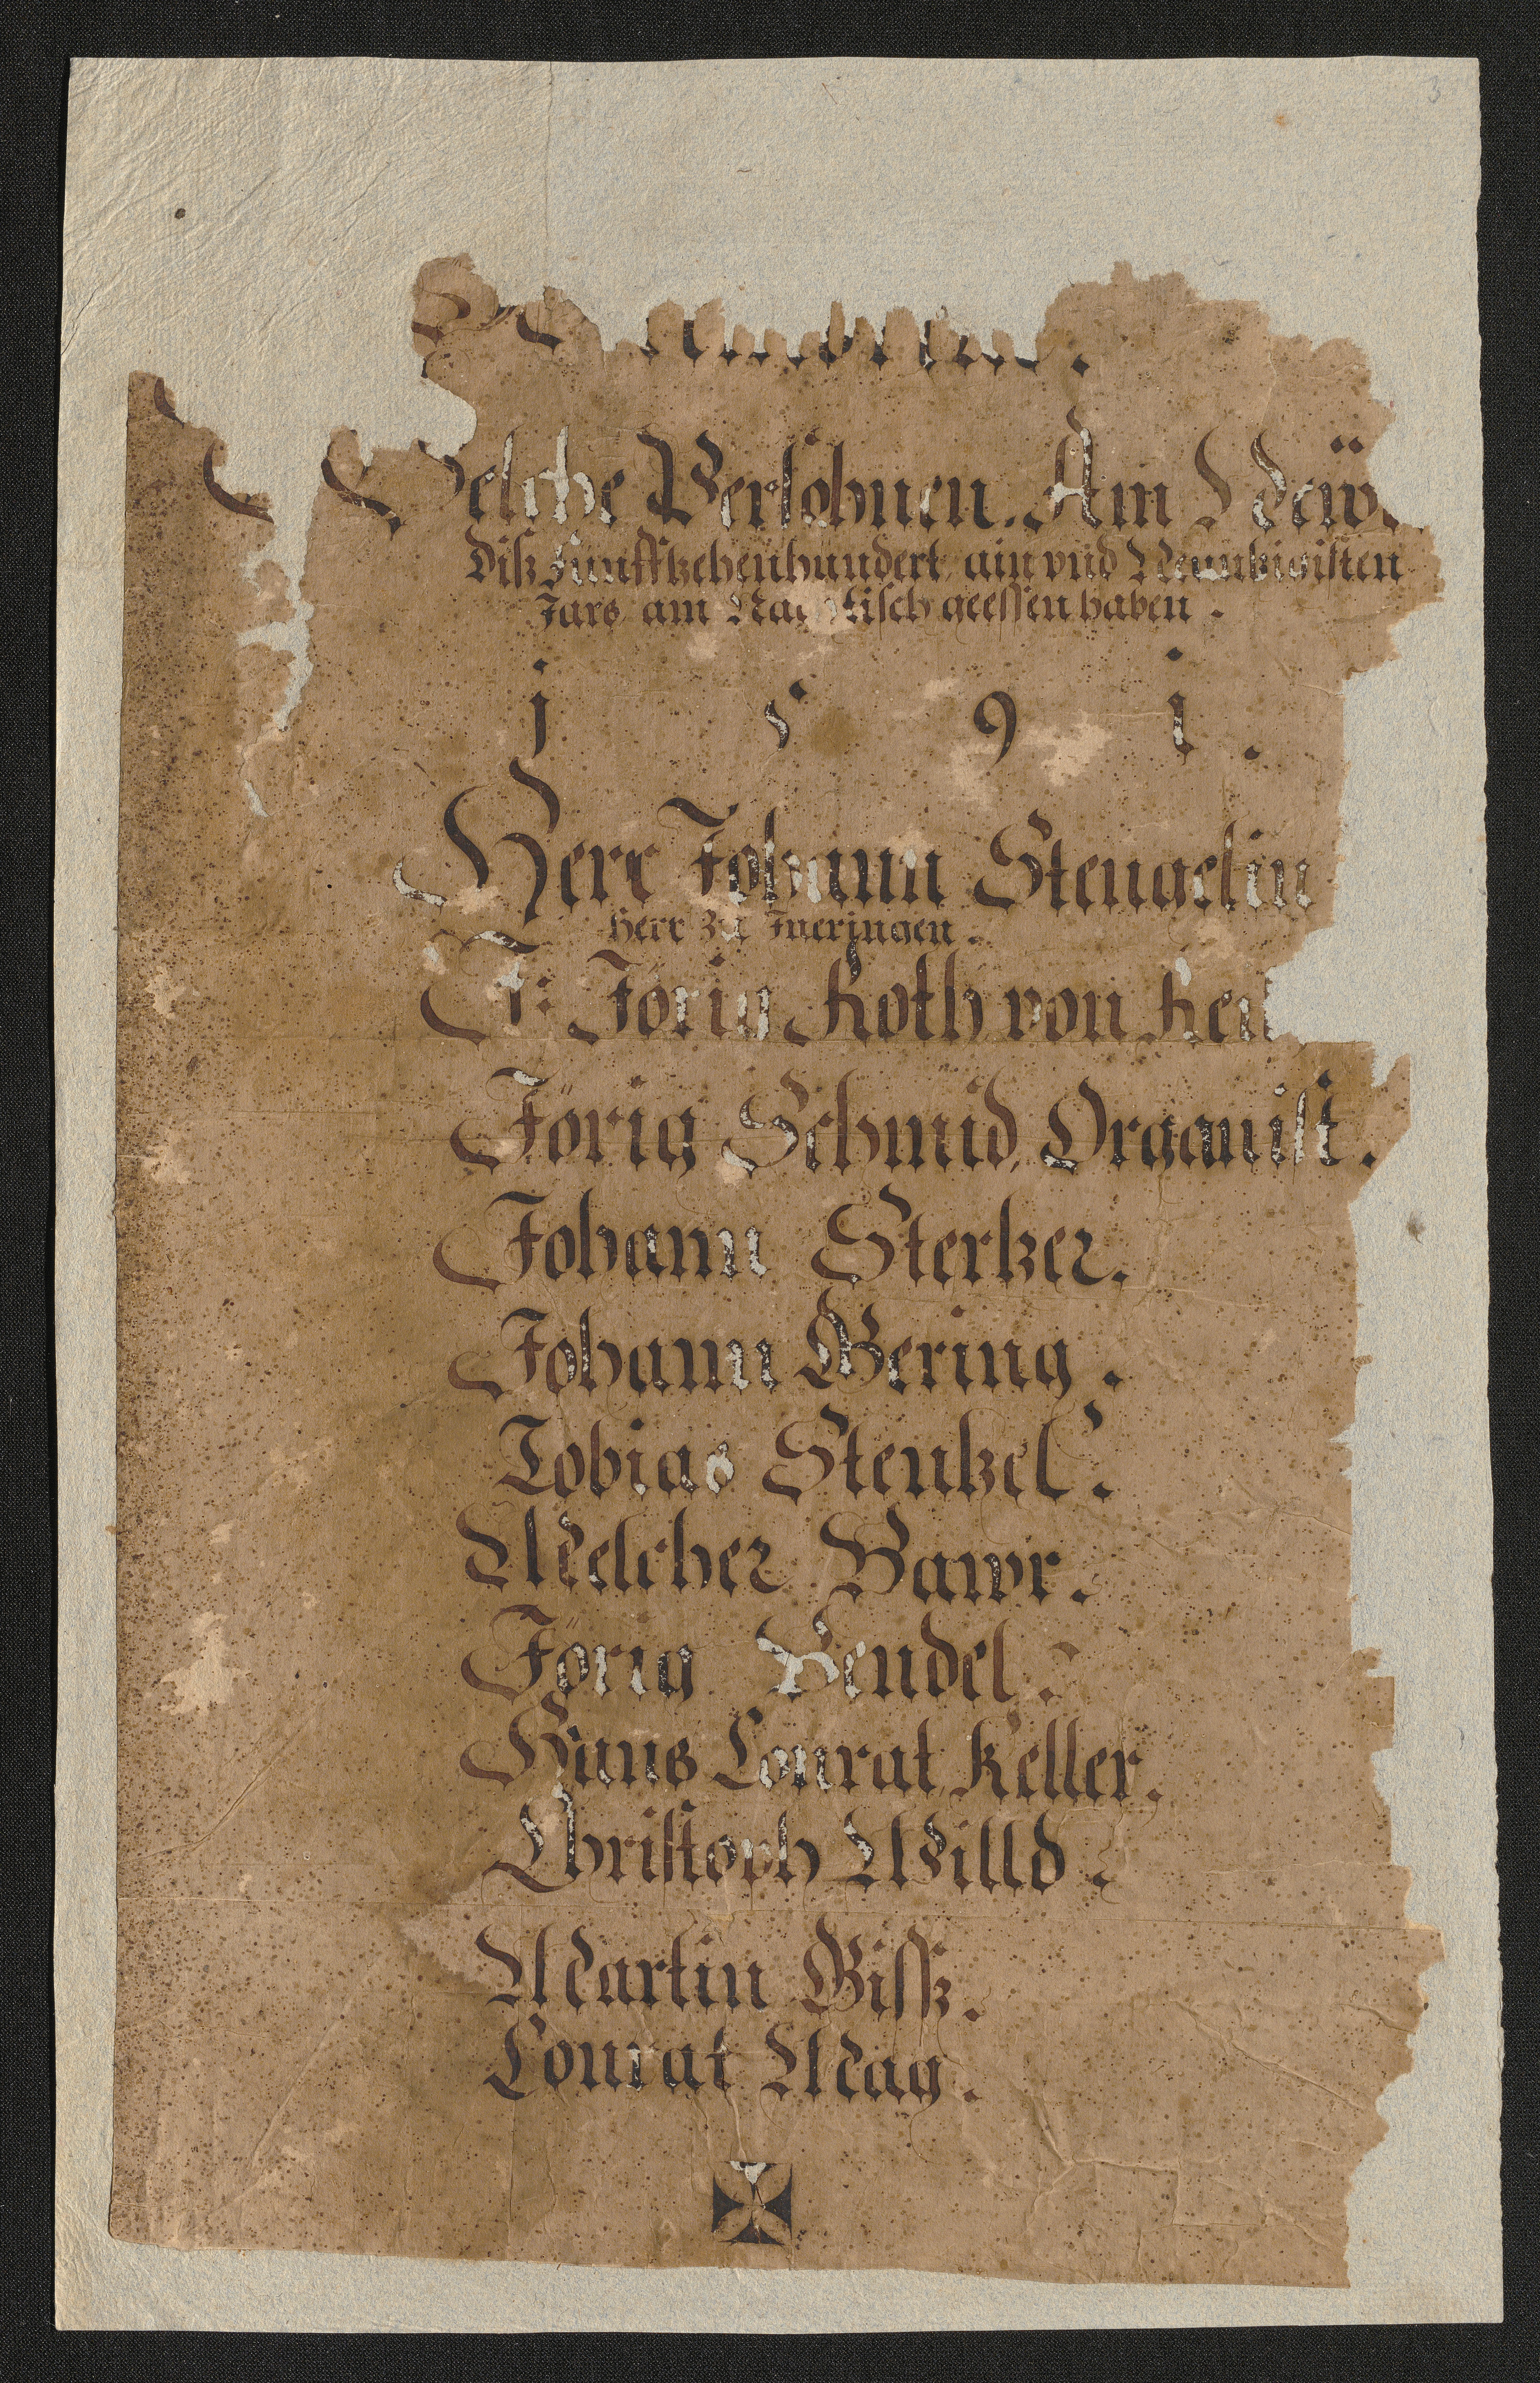 3
Welche Persohnen. Am New
Disz Funfftzehenhundert ain vnd Neuntzigisten
Jars am tisch geessen haben .
j 5 9 i .
Herr Johann Stengelin
Herr Zu Jneringen .
Jörig Roth von
Jörig Schmid, Organist .
Johann Stertzer.
Johann Gering .
Tobias Stentzel .
Melcher Bawr.
Jörig Bendel .
Hans Conrat Keller.
Christoph Willd .
Martin Gissz .
Conrat Mag .